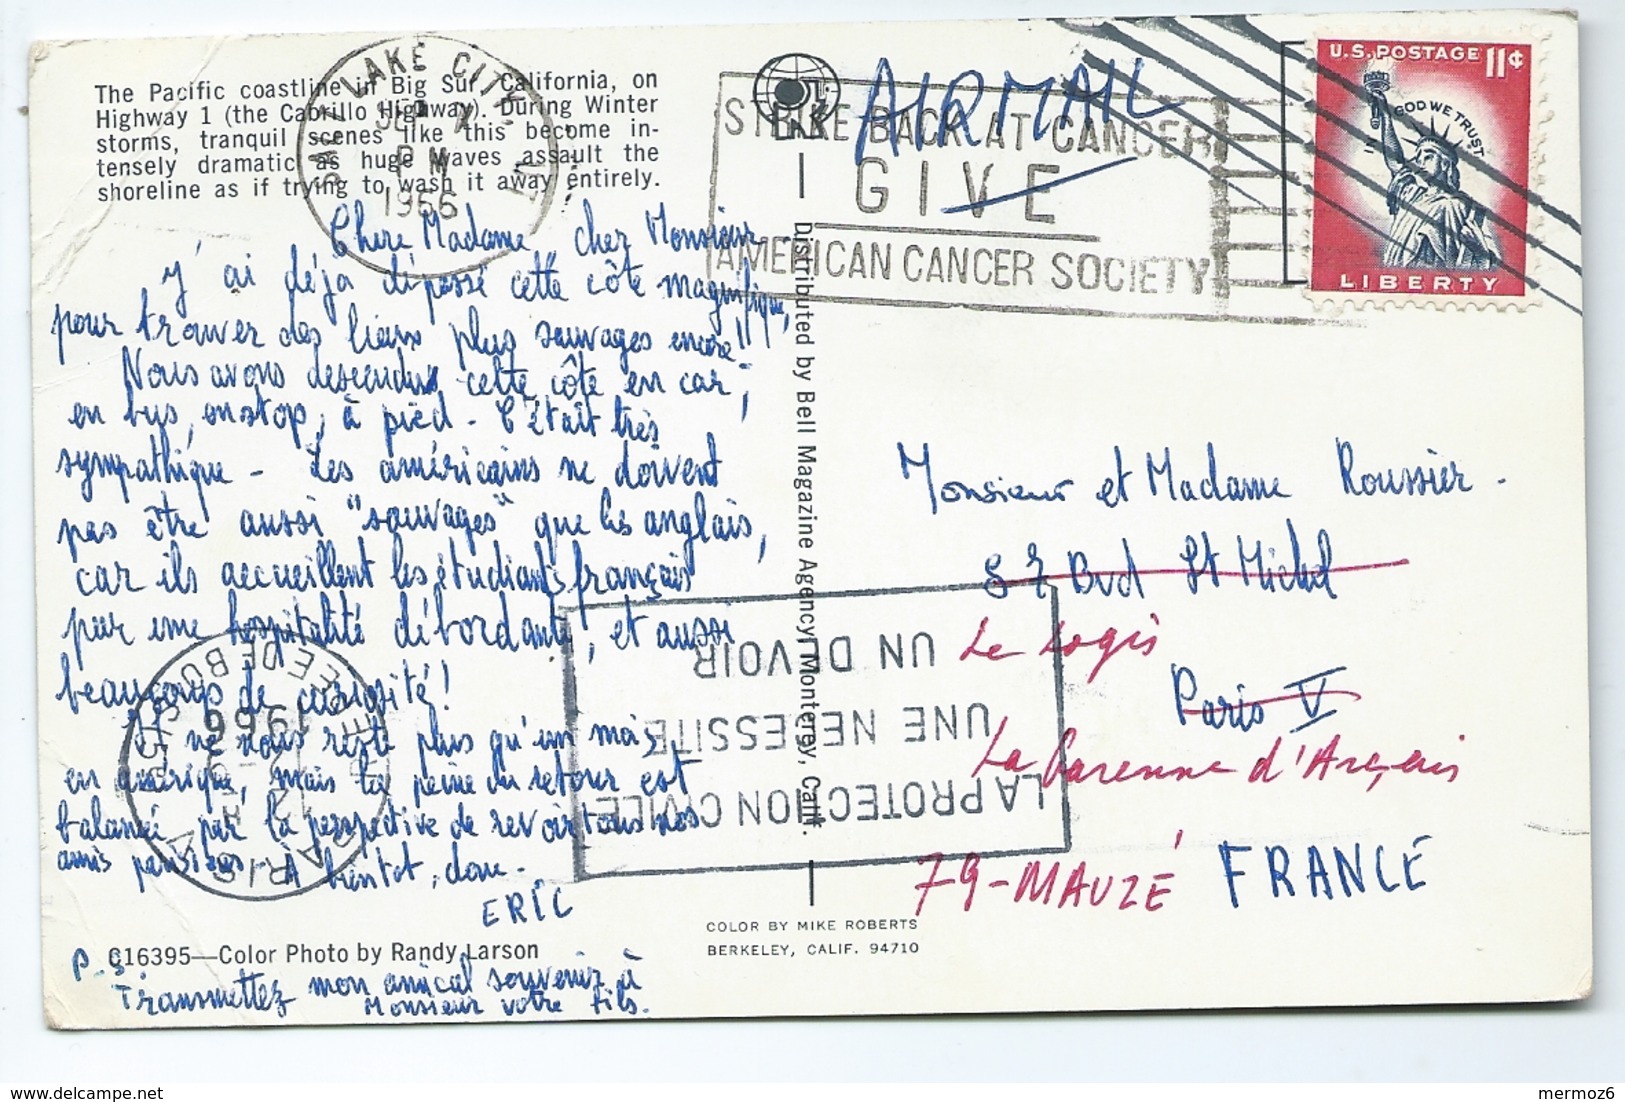 The Pacific coastline in Big Sur, California, on
Highway 1 (the Cabrillo Highway). During Winter
storms, tranquil scenes like this become in-
tensely dramatic as huge waves assault the
shoreline as if trying to wash it away entirely.
SALT LAKE CITY
PM
1966
AIRMAIL
STRIKE BACK AT CANCER
GIVE
AMERICAN CANCER SOCIETY
U.S. POSTAGE 11¢
IN GOD WE TRUST
LIBERTY
Chère Madame, cher Monsieur,
J'ai déjà dépassé cette côte magnifique,
pour trouver des lieux plus sauvages encore!!
Nous avons descendu cette côte en car,
en bus, en stop, à pied - C'était très
sympathique - Les américains ne doivent
pas être aussi "sauvages" que les anglais,
car ils accueillent les étudiants français
par une hospitalité débordante, et aussi
beaucoup de curiosité!
Et ne nous reste plus qu'un mois
en amérique, mais la peine du retour est
balancée par la perspective de revoir tous nos
amis parisiens. À bientôt, donc -
ERIC
P.S.
Transmettez mon amical souvenir à
Monsieur votre fils.
C16395—Color Photo by Randy Larson
Distributed by Bell Magazine Agency, Monterey, Calif.
COLOR BY MIKE ROBERTS
BERKELEY, CALIF. 94710
Monsieur et Madame Roussier -
87 Bvd St Michel
Le Logis
Paris V
La Garenne d'Arçais
79-MAUZÉ FRANCE
LA PROTECTION CIVILE
UNE NECESSITE
UN DEVOIR
PARIS
1966
mermoz6